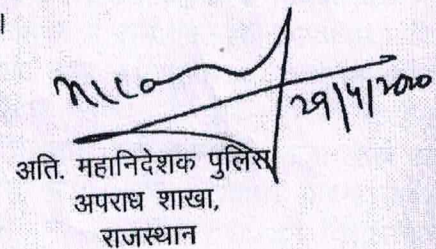 ।
29/4/2020
अति. महानिदेशक पुलिस
अपराध शाखा,
राजस्थान